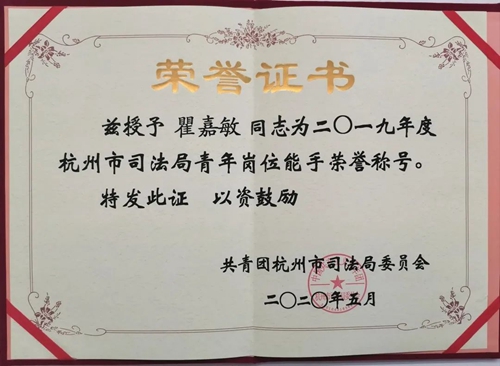 荣誉证书
兹授予 瞿嘉敏 同志为二〇一九年度
杭州市司法局青年岗位能手荣誉称号。
特发此证 以资鼓励
共青团杭州市司法局委员会
二〇二〇年五月